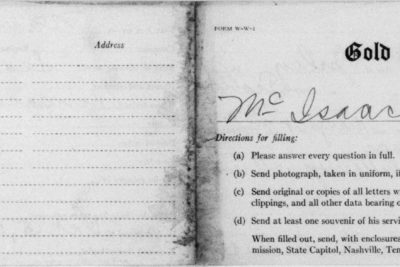 Address
FORM W-W-2
Gold
Mc Isaac
Directions for filling:
(a) Please answer every question in full.
(b) Send photograph, taken in uniform, i
(c) Send original or copies of all letters w
clippings, and all other data bearing o
(d) Send at least one souvenir of his servi
When filled out, send, with enclosures
mission, State Capitol, Nashville, Ten